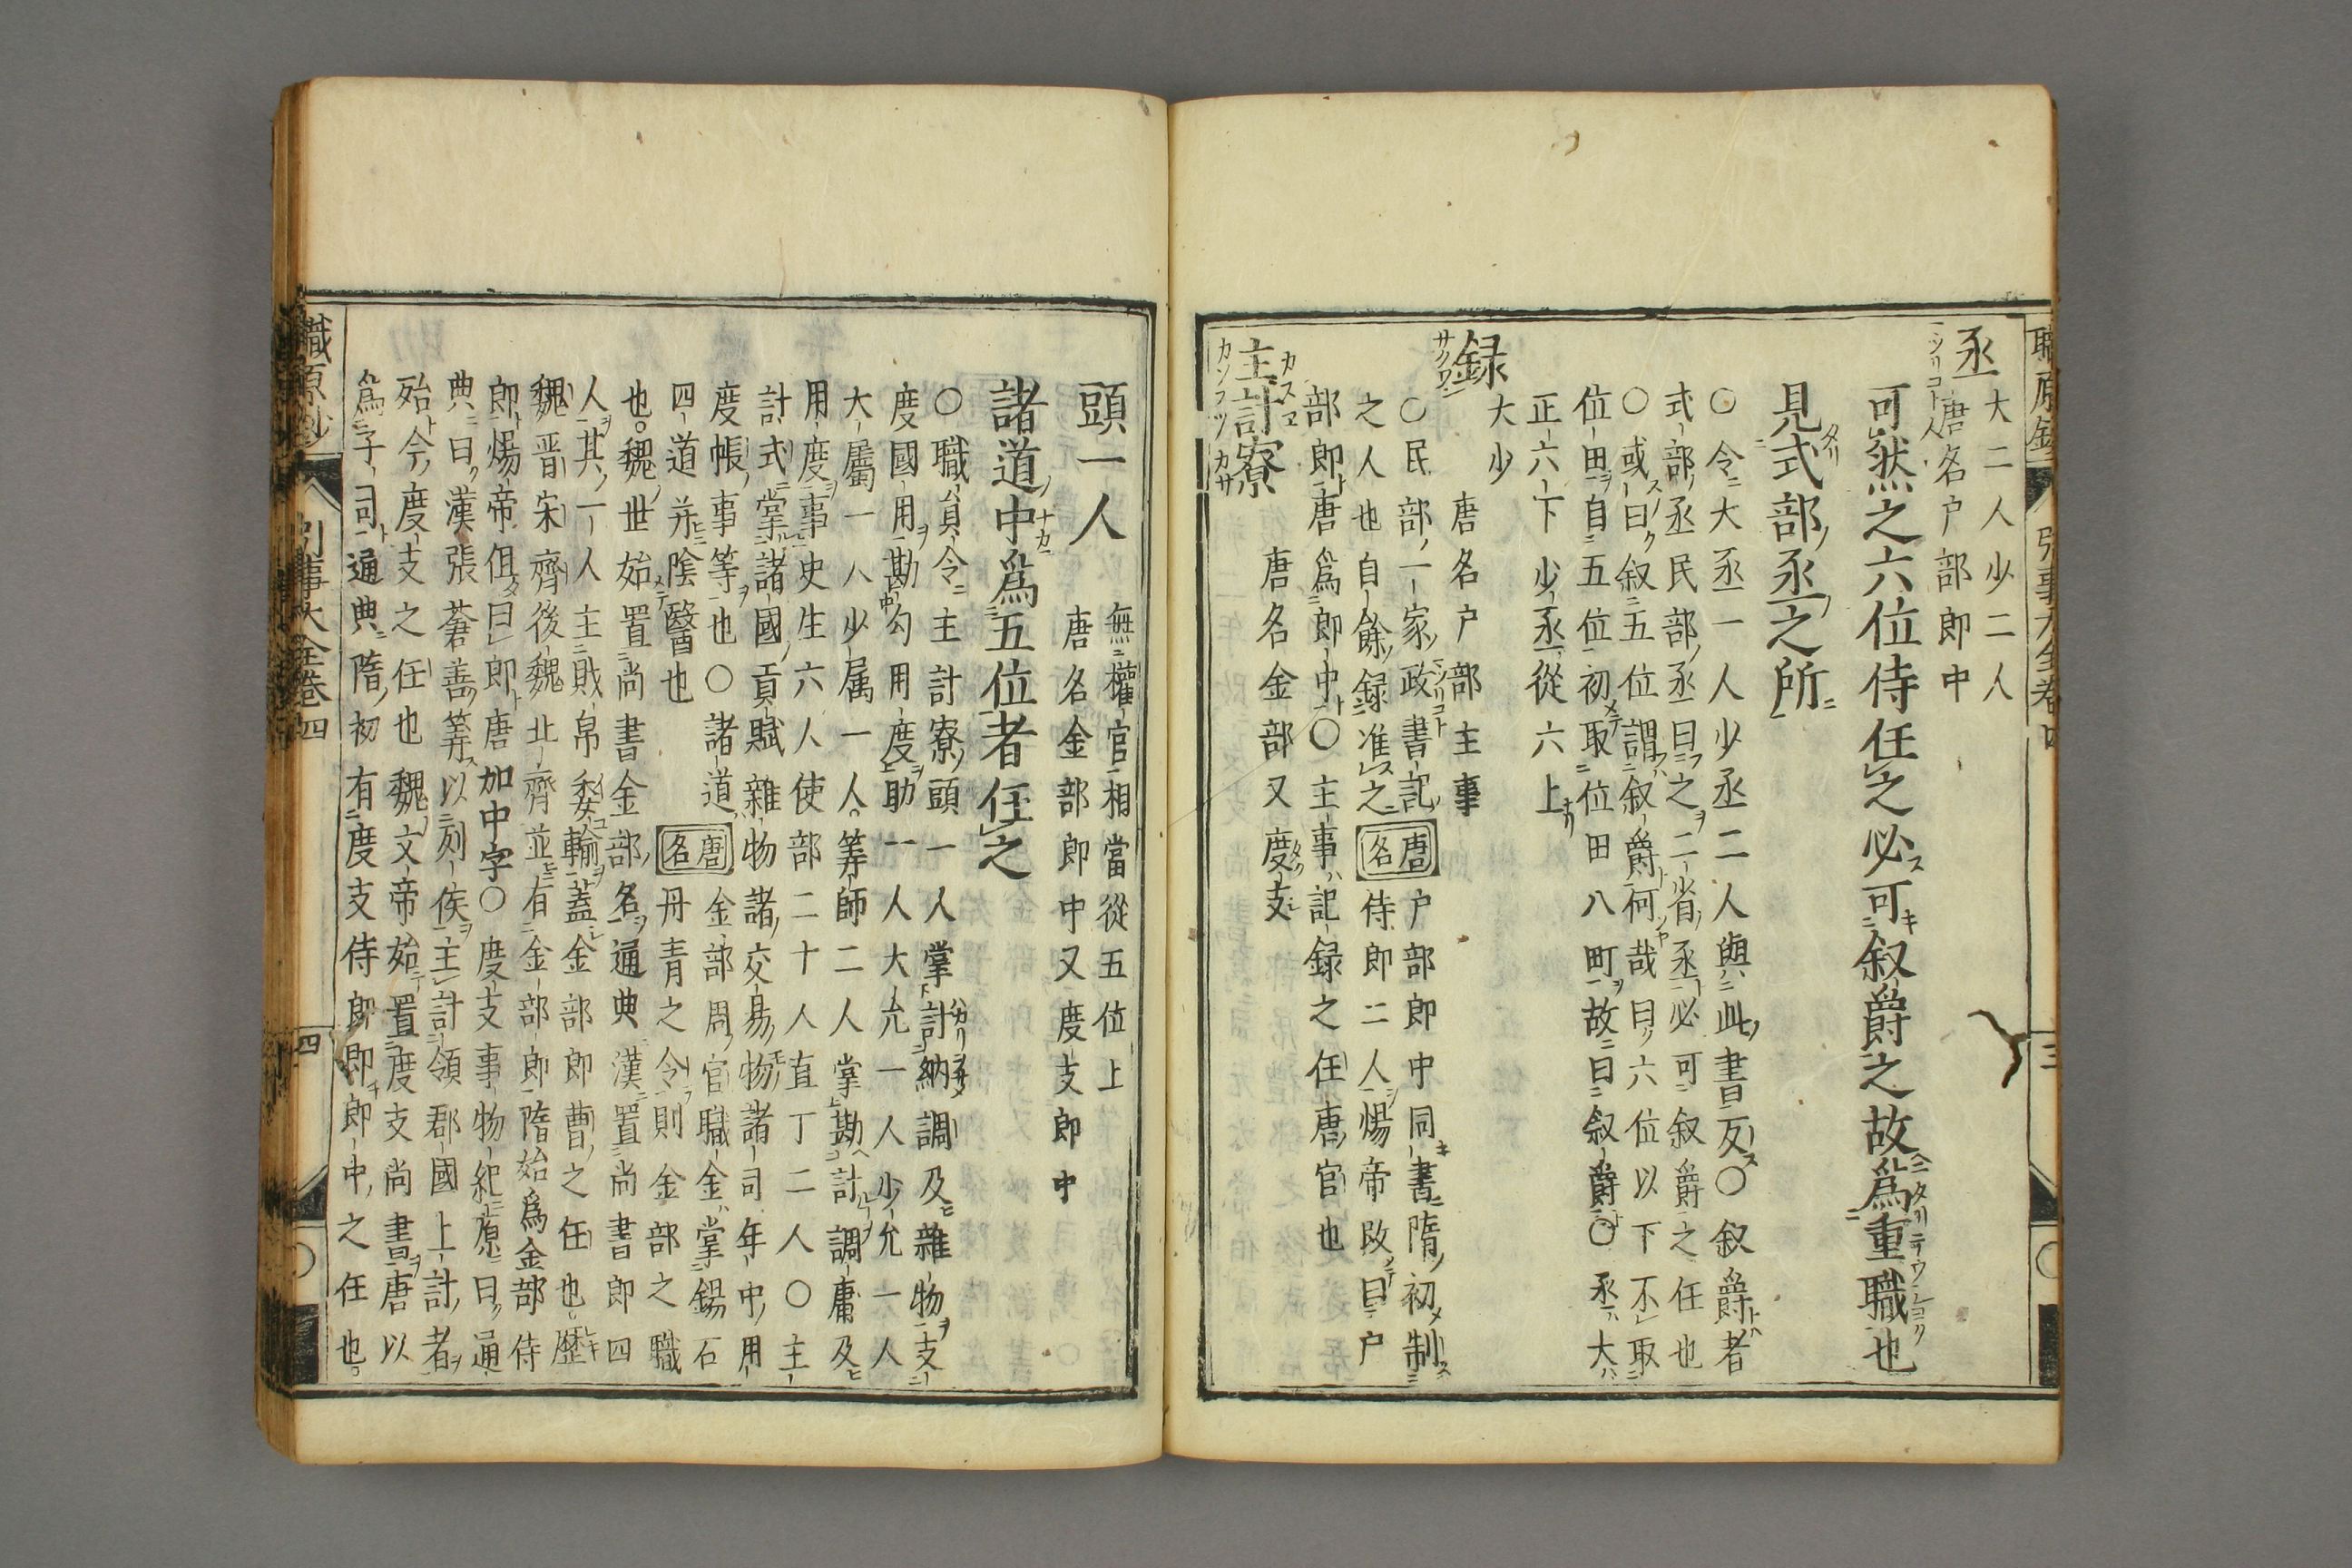 職原鈔
引事大全卷四
三
丞
大二人少二人
唐名戸部郎中
可然之六位侍任之必可叙爵之故爲重職也
見式部丞之所
○令大丞一人少丞二人與此書反○叙爵者
式部丞民部丞曰之二省丞必可叙爵之任也
○或曰叙五位謂叙爵何哉曰六位以下不取
位田自五位初取位田八町故曰叙爵○丞大
正六下少丞從六上
録
大少
唐名戸部主事
○民部一家政書記
唐名
戸部郎中同書隋初制
之人也自餘録准之
侍郎二人煬帝改曰戸
部郎唐爲郎中○主事記録之任唐官也
主計寮
唐名金部又度支
頭一人
無權官相當從五位上
唐名金部郎中又度支郎中
諸道中爲五位者任之
○職員令主計寮頭一人掌計納調及雜物支
度國用勘勾用度助一人大允一人少允一人
大屬一人少属一人筭師二人掌勘計調庸及
用度事史生六人使部二十人直丁二人○主
計式掌諸國貢賦雜物諸交易物諸司年中用
度帳事等也○諸道
唐名
金部周官職金掌錫石
四道并陰醫也
丹青之令則金部之職
也魏世始置尚書金部名通典漢置尚書郎四
人其一人主財帛委輸蓋金部郎曹之任也歷
魏晋宋齊後魏北齊並有金部郎隋始爲金部侍
郎煬帝但曰郎唐加中字○度支事物紀原曰通
典曰漢張蒼善筭以列侯主計領郡國上計者
殆今度支之任也魏文帝始置度支尚書唐以
爲子司通典隋初有度支侍郎即郎中之任也
職原鈔
引事大全卷四
四